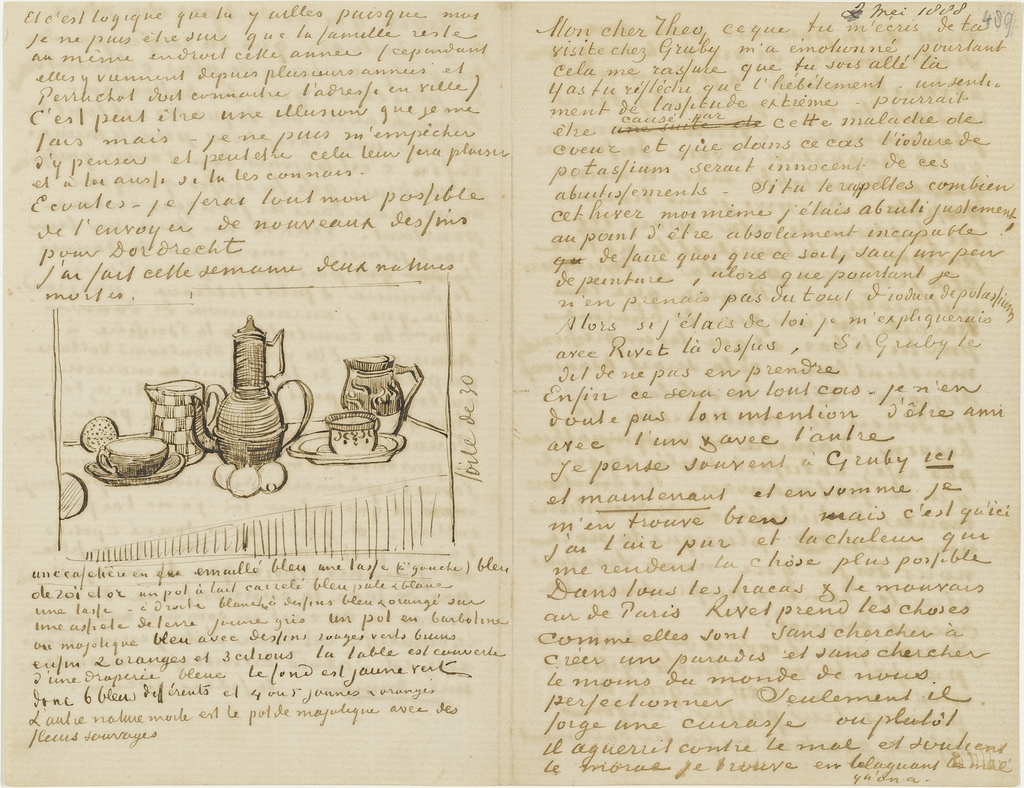 Et c'est logique que tu y ailles puisque moi
je ne puis être sûr que la famille reste
au même endroit cette année (cependant
elles y viennent depuis plusieurs années et
Perruchot doit connaitre l'adresse en ville)
C'est peut être une illusion que je me
fais mais - je ne puis m'empêcher
d'y penser et peutetre cela leur fera plaisir
et à toi aussi si tu les connais.
Ecoutes - je ferai tout mon possible
de t'envoyer de nouveaux dessins
pour Dordrecht
J'ai fait cette semaine deux natures
mortes.
toile de 30
une cafetière en fer emaillé bleu une tasse (à gauche) bleu
de roi et or un pot à lait carrelé bleu pale & blanc
une tasse - à droite blanche à dessins bleu & orangé sur
une assiete de terre jaune gris un pot en barbotine
ou majolique bleu avec dessins rouges verts bruns
enfin 2 oranges et 3 citrons la table est couverte
d'une draperie bleue le fond est jaune vert
donc 6 bleu différents et 4 ou 5 jaunes & orangés
L'autre nature morte est le pot de majolique avec des
fleurs sauvages
2 Mei 1888
489
Mon cher Theo, ce que tu m'écris de ta
visite chez Gruby m'a emotionné pourtant
cela me rassure que tu sois allé là
Y as tu réfléchi que l'hébètement - un senti-
ment de lassitude extrême - pourrait
être une suite de causé par cette maladie de
coeur et que dans ce cas l'iodure de
potassium serait innocent de ces
abrutissements - Si tu te rapelles combien
cet hiver moi même j'étais abruti justement
au point d'être absolument incapable
de faire quoi que ce soit, sauf un peu
de peinture, alors que pourtant je
n'en prenais pas du tout d'iodure de potassium
Alors si j'étais de toi je m'expliquerais
avec Rivet là dessus, Si Gruby te
dit de ne pas en prendre
Enfin ce sera en tout cas - je n'en
doute pas ton intention d'être ami
avec l'un & avec l'autre
Je pense souvent à Gruby ici
et maintenant et en somme je
m'en trouve bien mais c'est qu'ici
j'ai l'air pur et la chaleur qui
me rendent la chose plus possible
Dans tous les tracas & le mauvais
air de Paris Rivet prend les choses
comme elles sont sans chercher à
créer un paradis et sans chercher
le moins du monde de nous
perfectionner Seulement il
forge une cuirasse ou plutôt
il aguerrit contre le mal et soutient
le moral je trouve en blaguant le mal
qu'on a.